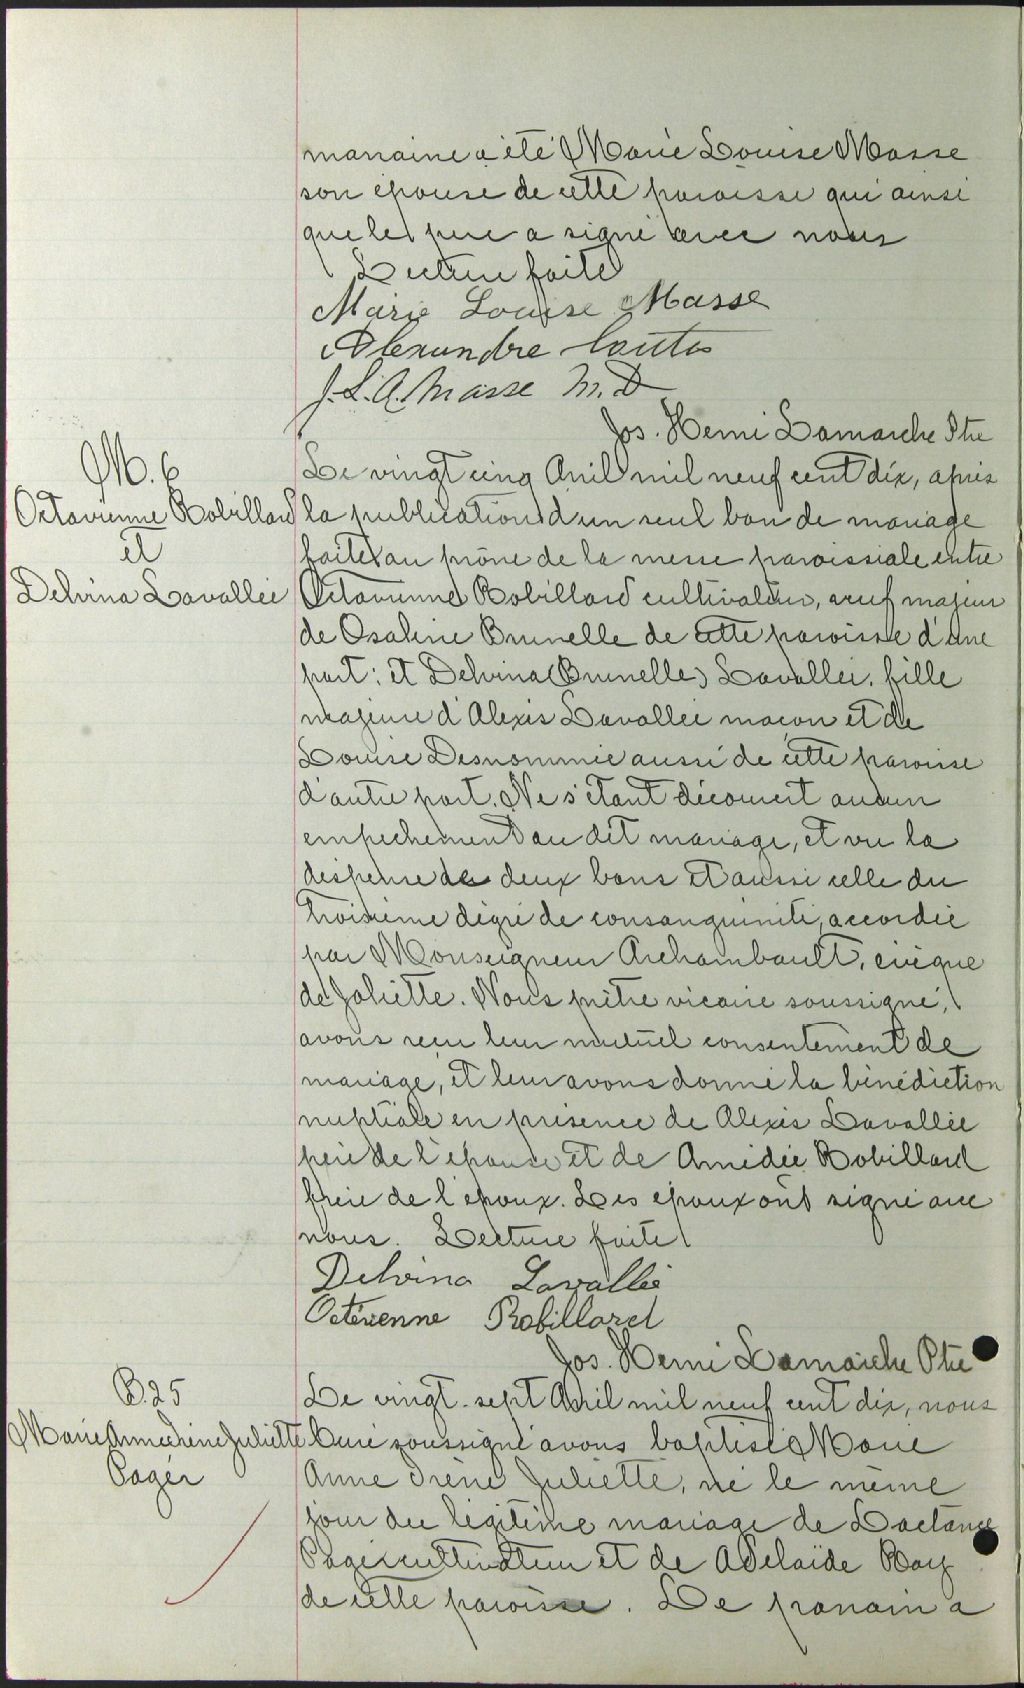 marraine a été Marie Louise Masse
son épouse de cette paroisse qui ainsi
que le père a signé avec nous
Lecture faite
Marie Louise Masse
Alexandre
J.L.A. Masse M.D
Jos. Henri Lamarche Ptre
M. 6
Octavienne Robillard
et
Delvina Lavallée
Le vingt cinq Avril mil neuf cent dix, après
la publication d'un seul ban de mariage
faite au prône de la messe paroissiale entre
Octavienne Robillard cultivateur, veuf majeur
de Osaline Brunelle de cette paroisse d'une
part; et Delvina (Brunelle) Lavallée, fille
majeure d'Alexis Lavallée maçon et de
Louise Desnommie aussi de cette paroisse
d'autre part. Ne s'étant découvert aucun
empechement au dit mariage, et vu la
dispense de deux bans et aussi celle du
troisième dégré de consanguinité, accordée
par Monseigneur Archambault, évêque
de Joliette. Nous prêtre vicaire soussigné,
avons reçu leur mutuel consentement de
mariage, et leur avons donné la bénédiction
nuptiale en présence de Alexis Lavallée
père de l'épouse et de Amédée Robillard
frère de l'époux. Les époux ont signé avec
nous. Lecture faite
Delvina Lavallée
Octévenne Robillard
Jos. Henri Lamarche Ptre
B.25
Marie Anne Irène Juliette
Pagér
Le vingt-sept Avril mil neuf cent dix, nous
Curé soussigné avons baptisé Marie
Anne Irène Juliette, né le même
jour du légitime mariage de Lactance
Pagé cultivateur et de Adelaïde Roy
de cette paroisse. Le parrain a